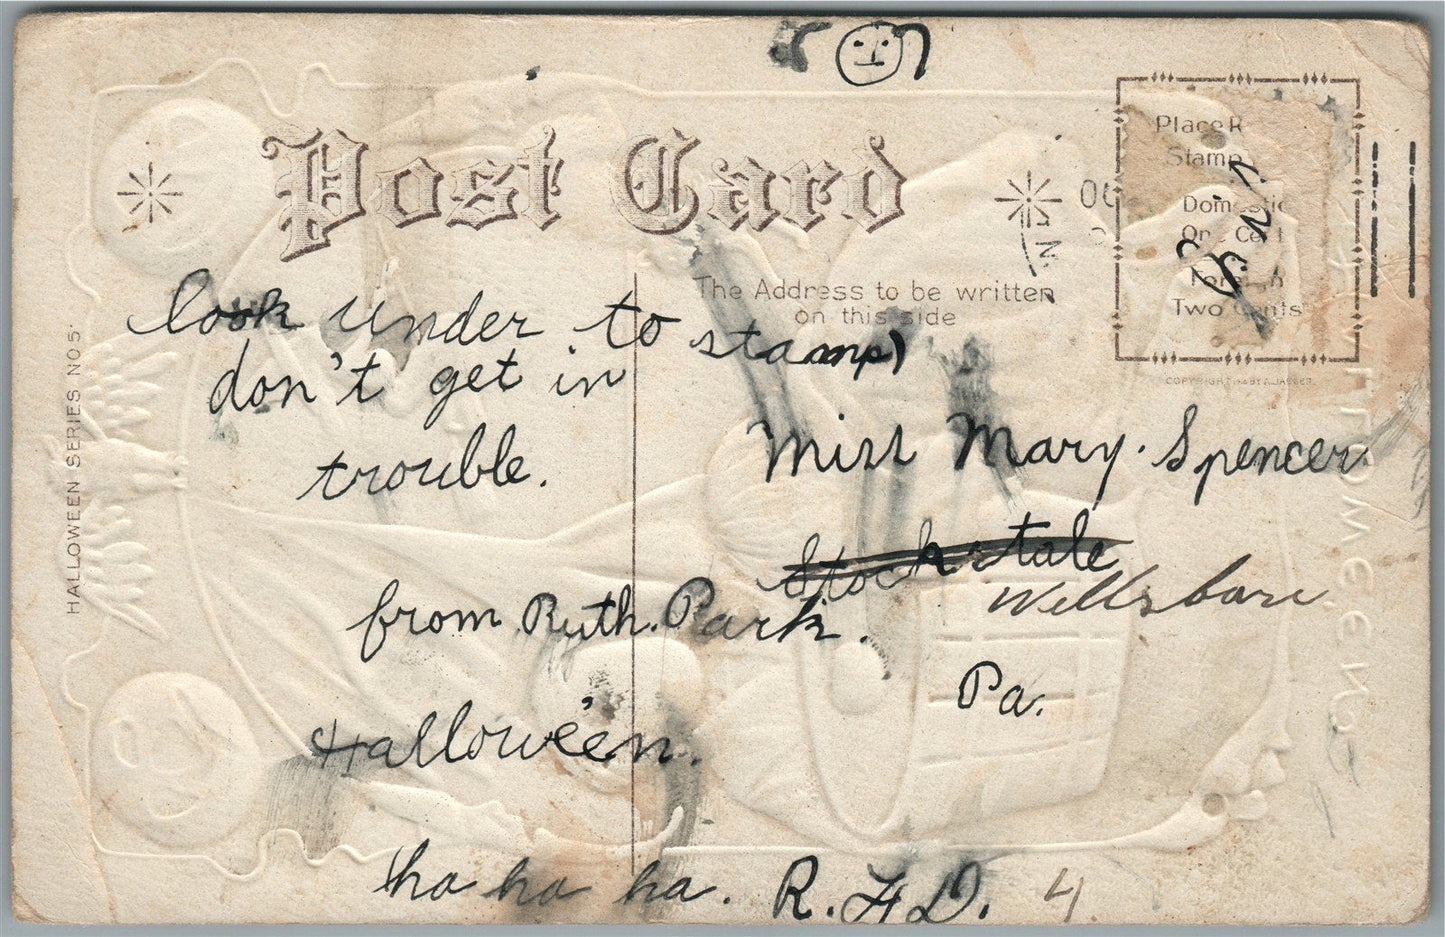 Post Card
Place
Stamp
Domestic
One Cent
Foreign
Two Cents
COPYRIGHT
The Address to be written
on this side
HALLOWEEN SERIES NO 5.
look under to stamp)
don't get in
trouble.
from Ruth. Park.
Hallowe'en.
ha ha ha.
Miss Mary. Spencer
Stockstale
Wellsboro
Pa.
R.F.D. 4
HALLOWE'EN